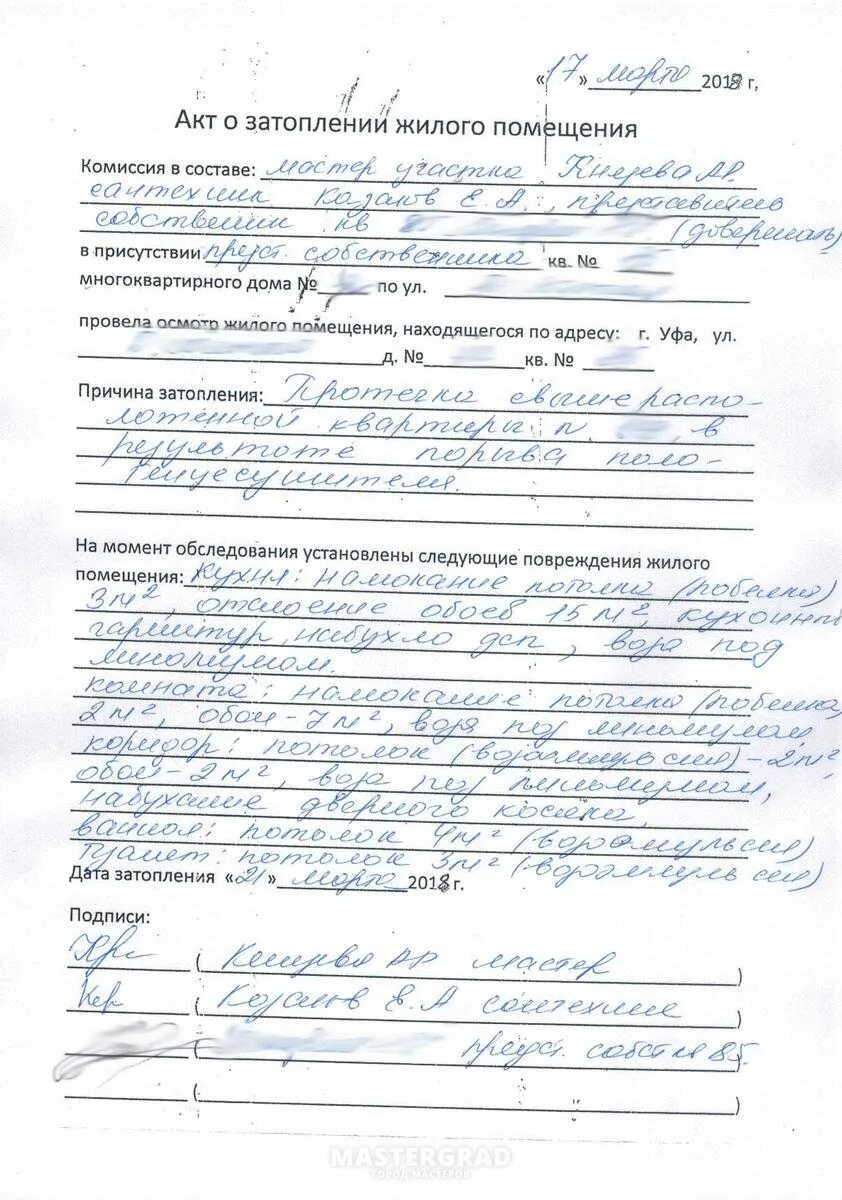 «17» марта 2018 г,
Акт о затоплении жилого помещения
Комиссия в составе: мастер участка Князева А.Р.
сантехник Казаков Е.А., представитель
собственник кв (доверенность)
в присутствии предст. собственника кв. №
многоквартирного дома № по ул.
провела осмотр жилого помещения, находящегося по адресу: г. Уфа, ул.
д. № кв. №
Причина затопления: Протечка свыше распо-
ложенной квартиры п. в
результате порыва поло-
тенцесушителя.
На момент обследования установлены следующие повреждения жилого
помещения: кухня: намокание потолка (побелка)
3м², отслоение обоев 15м², кухонный
гарнитур набухло дсп, вода под
линолиумом.
комната: намокание потолка (побелка,
2м², обои - 7м², вода под линолиумом,
коридор: потолок (водоэмульсия) - 2м²,
обои - 2м², вода под линолиумом,
набухание дверного косяка,
ванная: потолок 4м² (водоэмульсия)
туалет: потолок 3м² (-водоэмульсия)
Дата затопления «21» марта 2018 г.
Подписи:
( Князева АР мастер )
( Казаков Е.А сантехник )
( предст. собств кв 85. )
( )
MASTERGRAD
ГОРОД МАСТЕРОВ